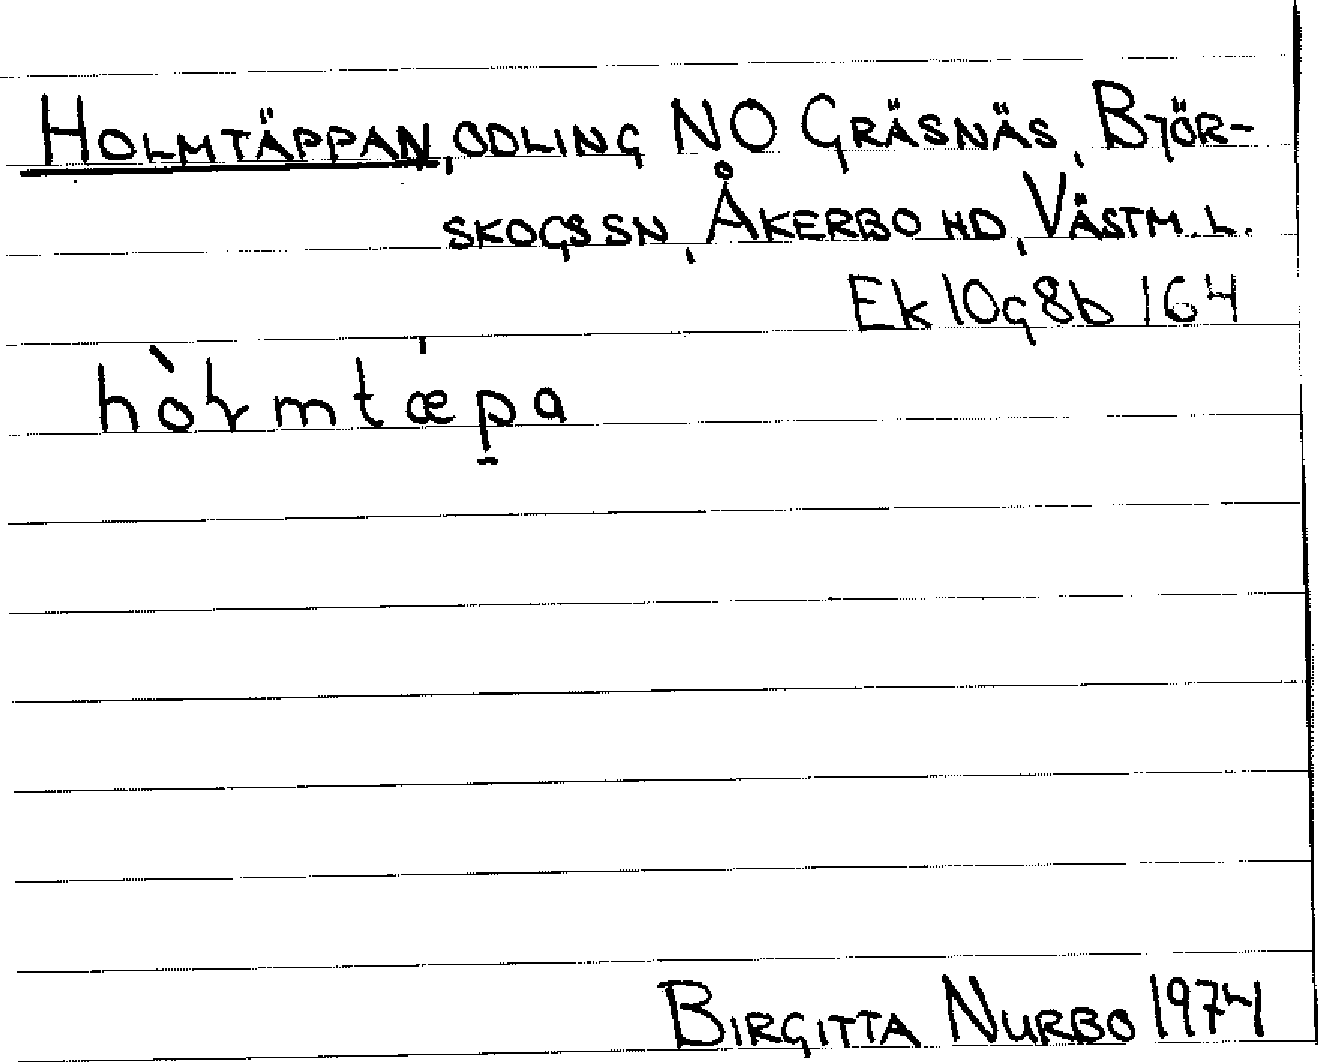 HOLMTÄPPAN, ODLING NO GRÄSNÄS, BJÖR-
SKOGS SN, ÅKERBO HD, VÄSTM. L.
Ek 10g8b 164
hòɽmtæp̱a
BIRGITTA NURBO 1974